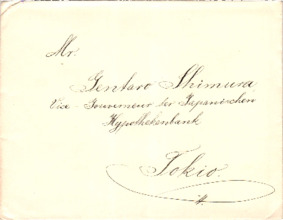 Mr.
Gentaro Shimura
Vice-Gouverneur der Japanischen
Hypothekenbank
Tokio.